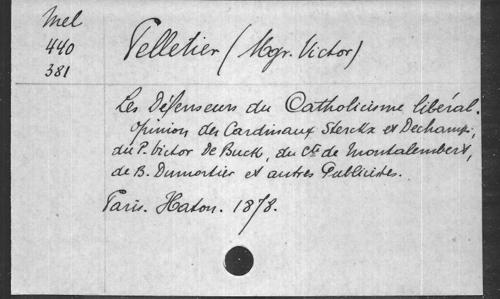 Mel
440
381
Pelletier (Mgr. Victor)
Les Défenseurs du Catholicisme libéral.
Opinion des Cardinaux Sterckx et Dechamps,
du P. Victor De Buck, du Cte de Montalembert,
de B. Dumortier et autres Publicistes.
Paris. Haton. 1878.